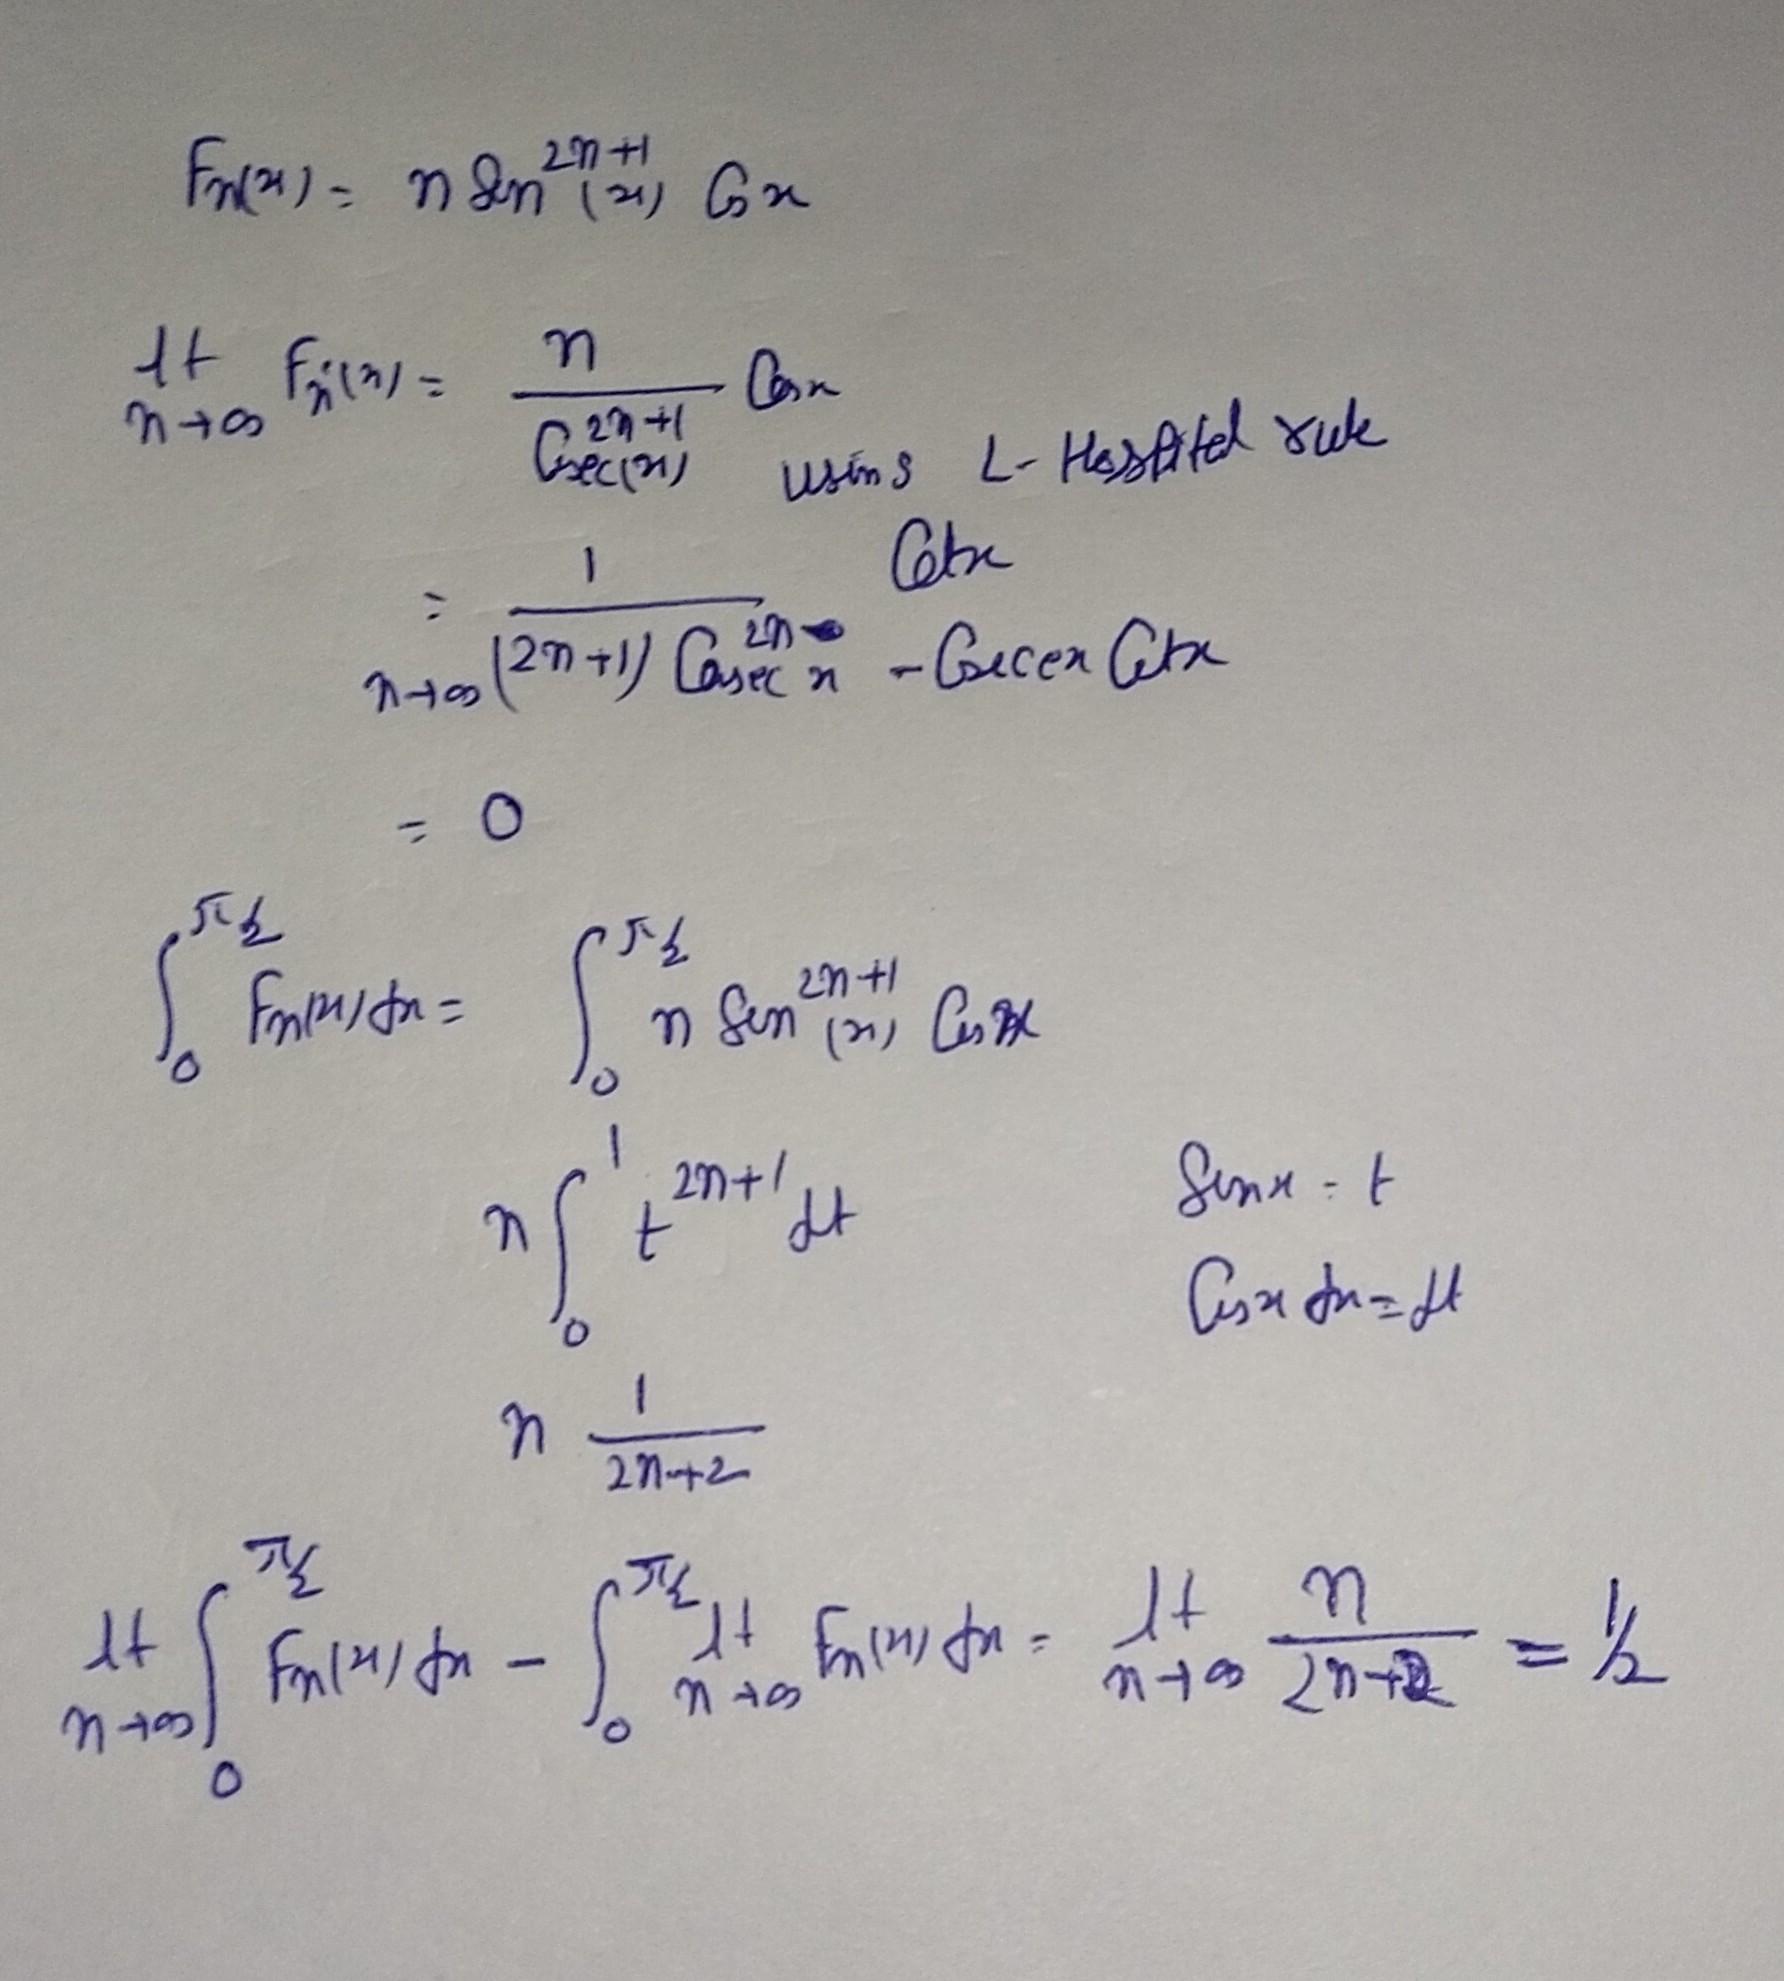 Fn(x) = n Sin^{2n+1}(x) Cos x
lt n→∞ Fn(x) = n / Cosec^{2n+1}(x) Cos x
using L-Hospital rule
= lt n→∞ 1 / (2n+1) Cosec^{2n} x - Cosec x Cot x Cot x
= 0
∫_0^{π/2} Fn(x) dx = ∫_0^{π/2} n Sin^{2n+1}(x) Cos x
n ∫_0^1 t^{2n+1} dt Sin x = t
Cos x dx = dt
n 1/(2n+2)
lt n→∞ ∫_0^{π/2} Fn(x) dx - ∫_0^{π/2} lt n→∞ Fn(x) dx = lt n→∞ n/(2n+2) = 1/2